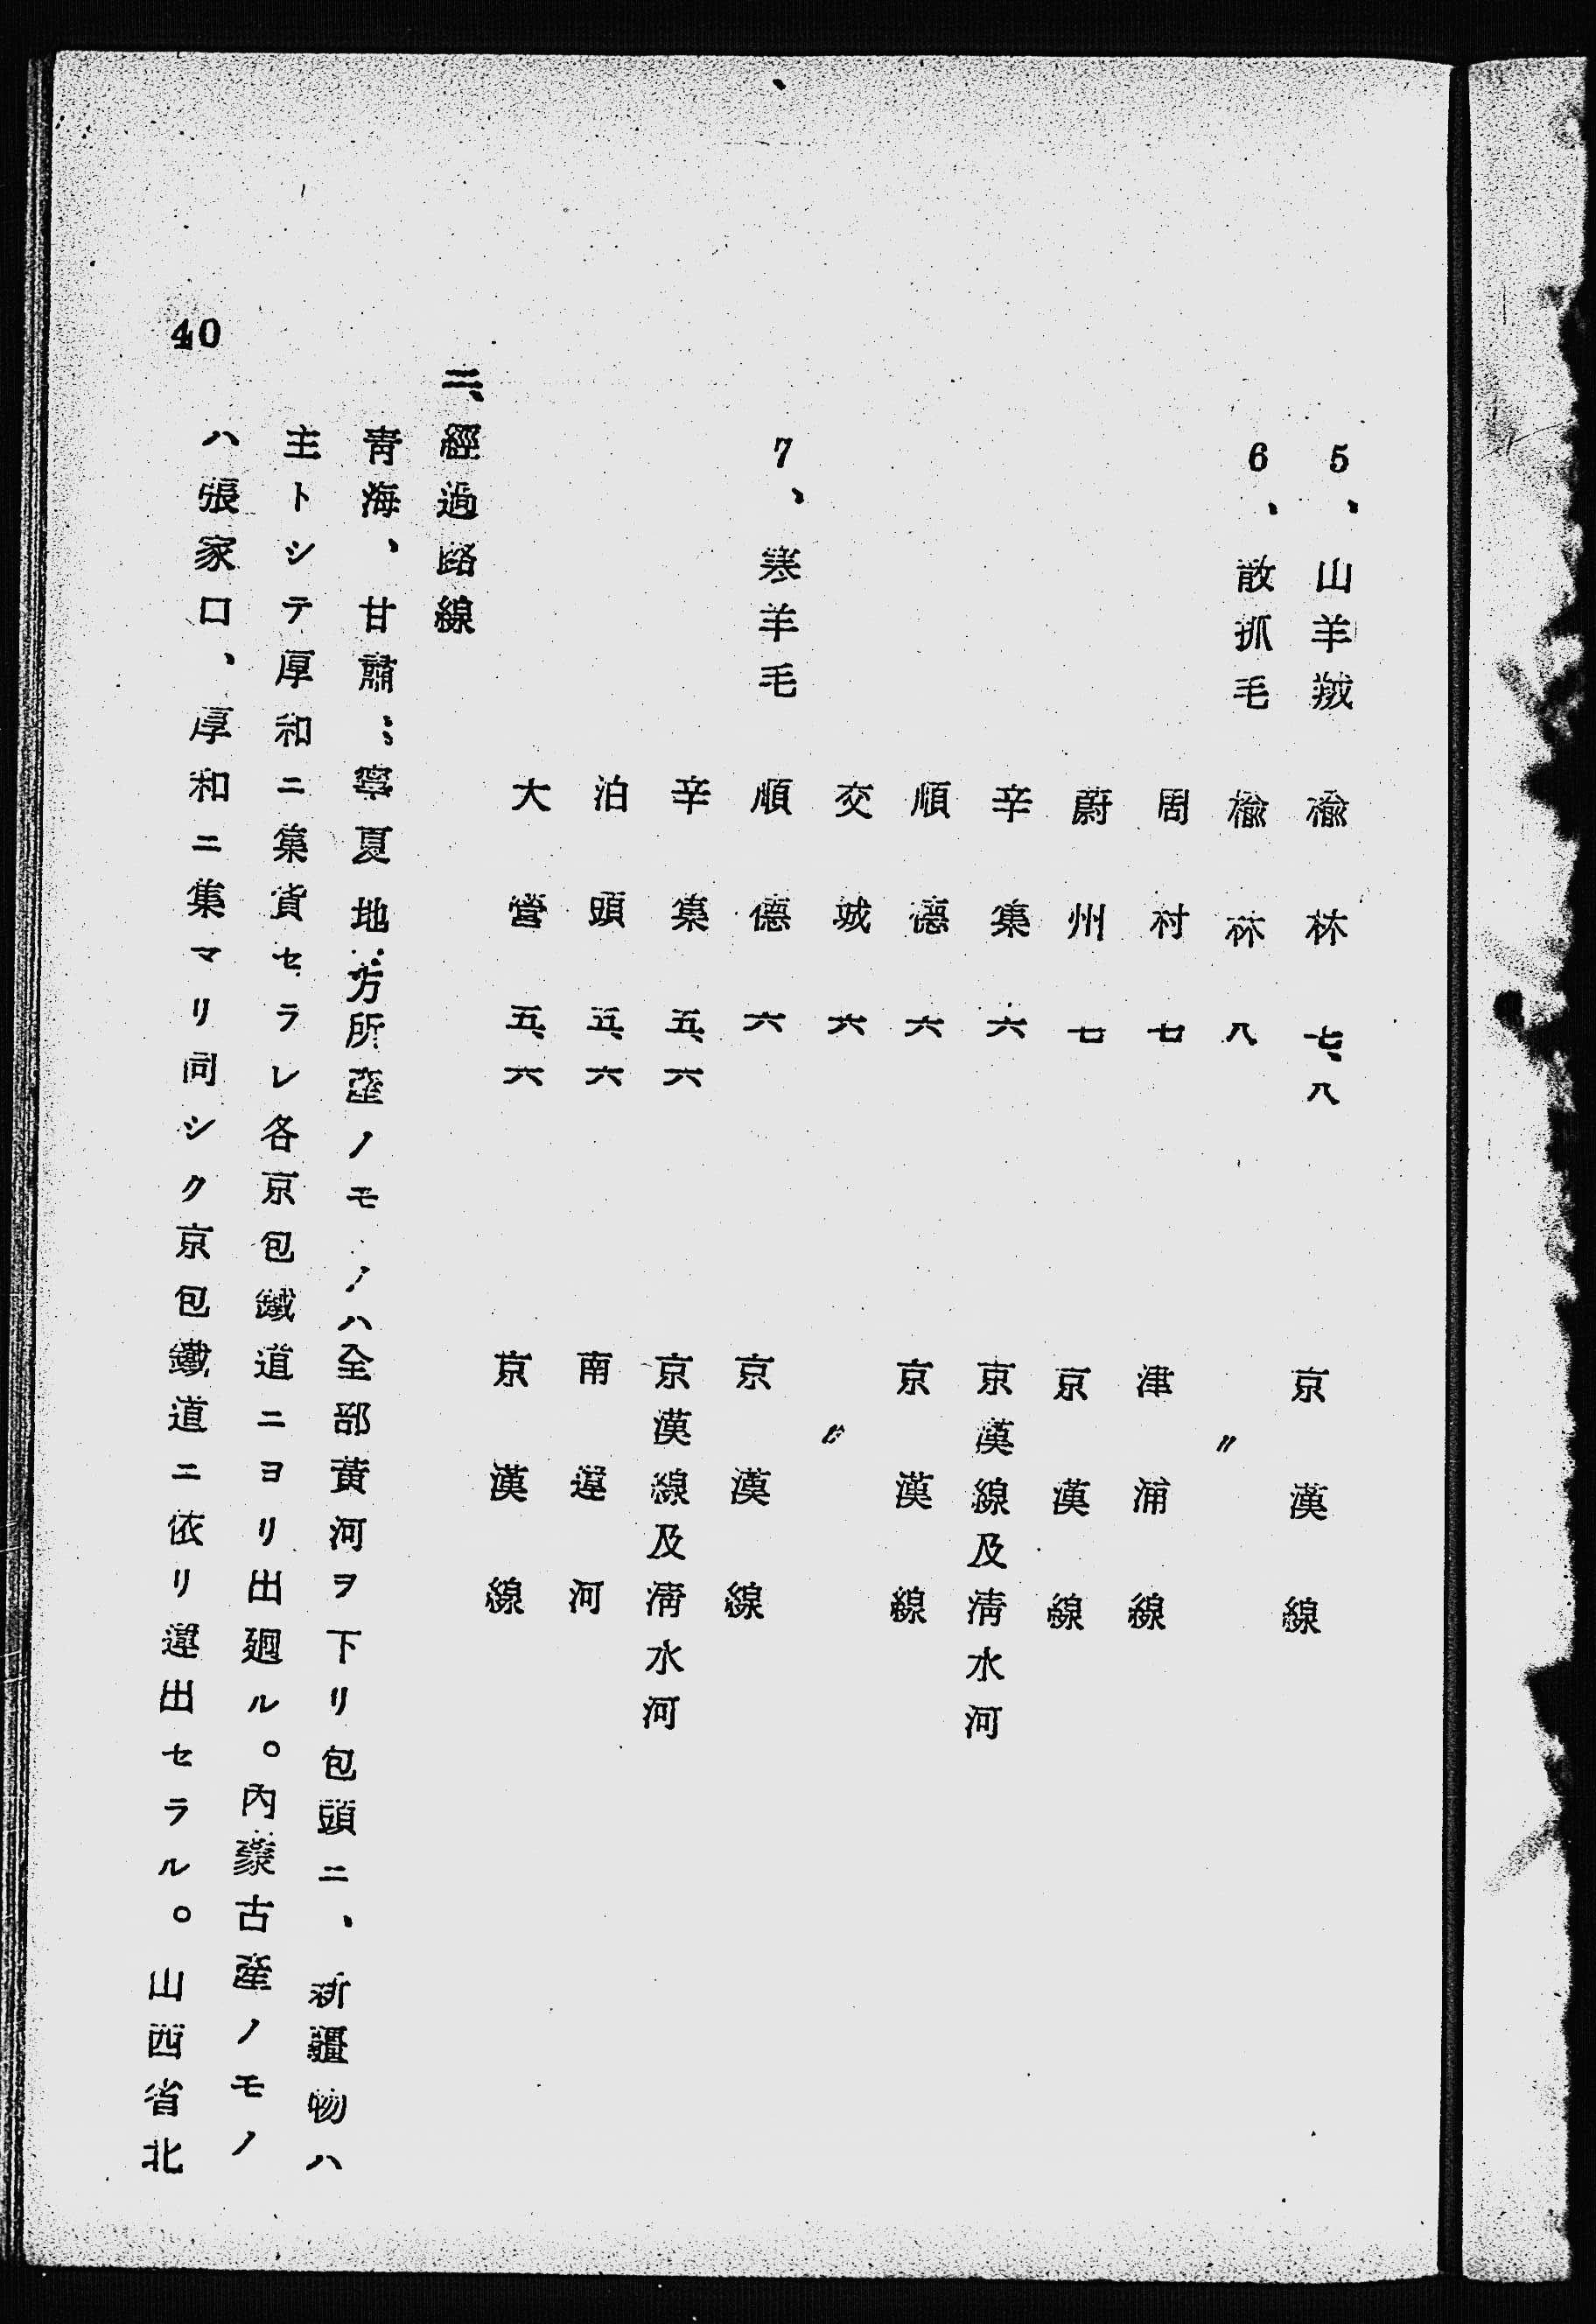 5、山羊羢 楡林 七、八 京漢線
6、散抓毛 楡林 八 〃
周村 七 津浦線
蔚州 七 京漢線
辛集 六 京漢線及淸水河
順德 六 京漢線
交城 六 〃
7、寒羊毛 順德 六 京漢線
辛集 五、六 京漢線及淸水河
泊頭 五、六 南運河
大營 五、六 京漢線
二、經過路線
靑海、甘肅、寧夏地方所產ノモノハ全部黃河ヲ下リ包頭ニ、新疆物ハ
主トシテ厚和ニ集貨セラレ各京包鐵道ニヨリ出廻ル。內蒙古產ノモノ
ハ張家口、厚和ニ集マリ同シク京包鐵道ニ依リ運出セラル。山西省北
40